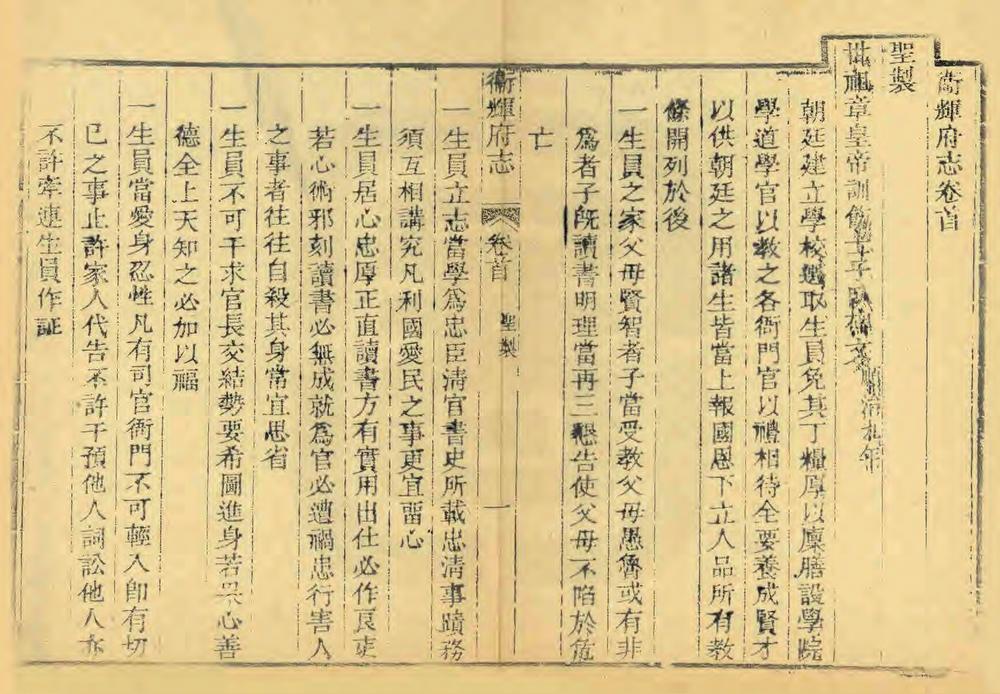 衞輝府志卷首
聖製
世祖章皇帝訓飭士子臥碑文順治九年
朝廷建立學校選取生員免其丁糧厚以廩膳設學院
學道學官以教之各衙門官以禮相待全要養成賢才
以供朝廷之用諸生皆當上報國恩下立人品所有教
條開列於後
一生員之家父母賢智者子當受教父母愚魯或有非
爲者子旣讀書明理當再三懇告使父母不陷於危
亡
衞輝府志 卷首 聖製 一
一生員立志當學爲忠臣淸官書史所載忠淸事蹟務
須互相講究凡利國愛民之事更宜留心
一生員居心忠厚正直讀書方有實用出仕必作良吏
若心術邪刻讀書必無成就爲官必遭禍患行害人
之事者往往自殺其身當宜思省
一生員不可干求官長交結勢要希圖進身若果心善
德全上天知之必加以福
一生員當愛身忍性凡有司官衙門不可輕入卽有切
己之事止許家人代告不許干預他人詞訟他人亦
不許牽連生員作証